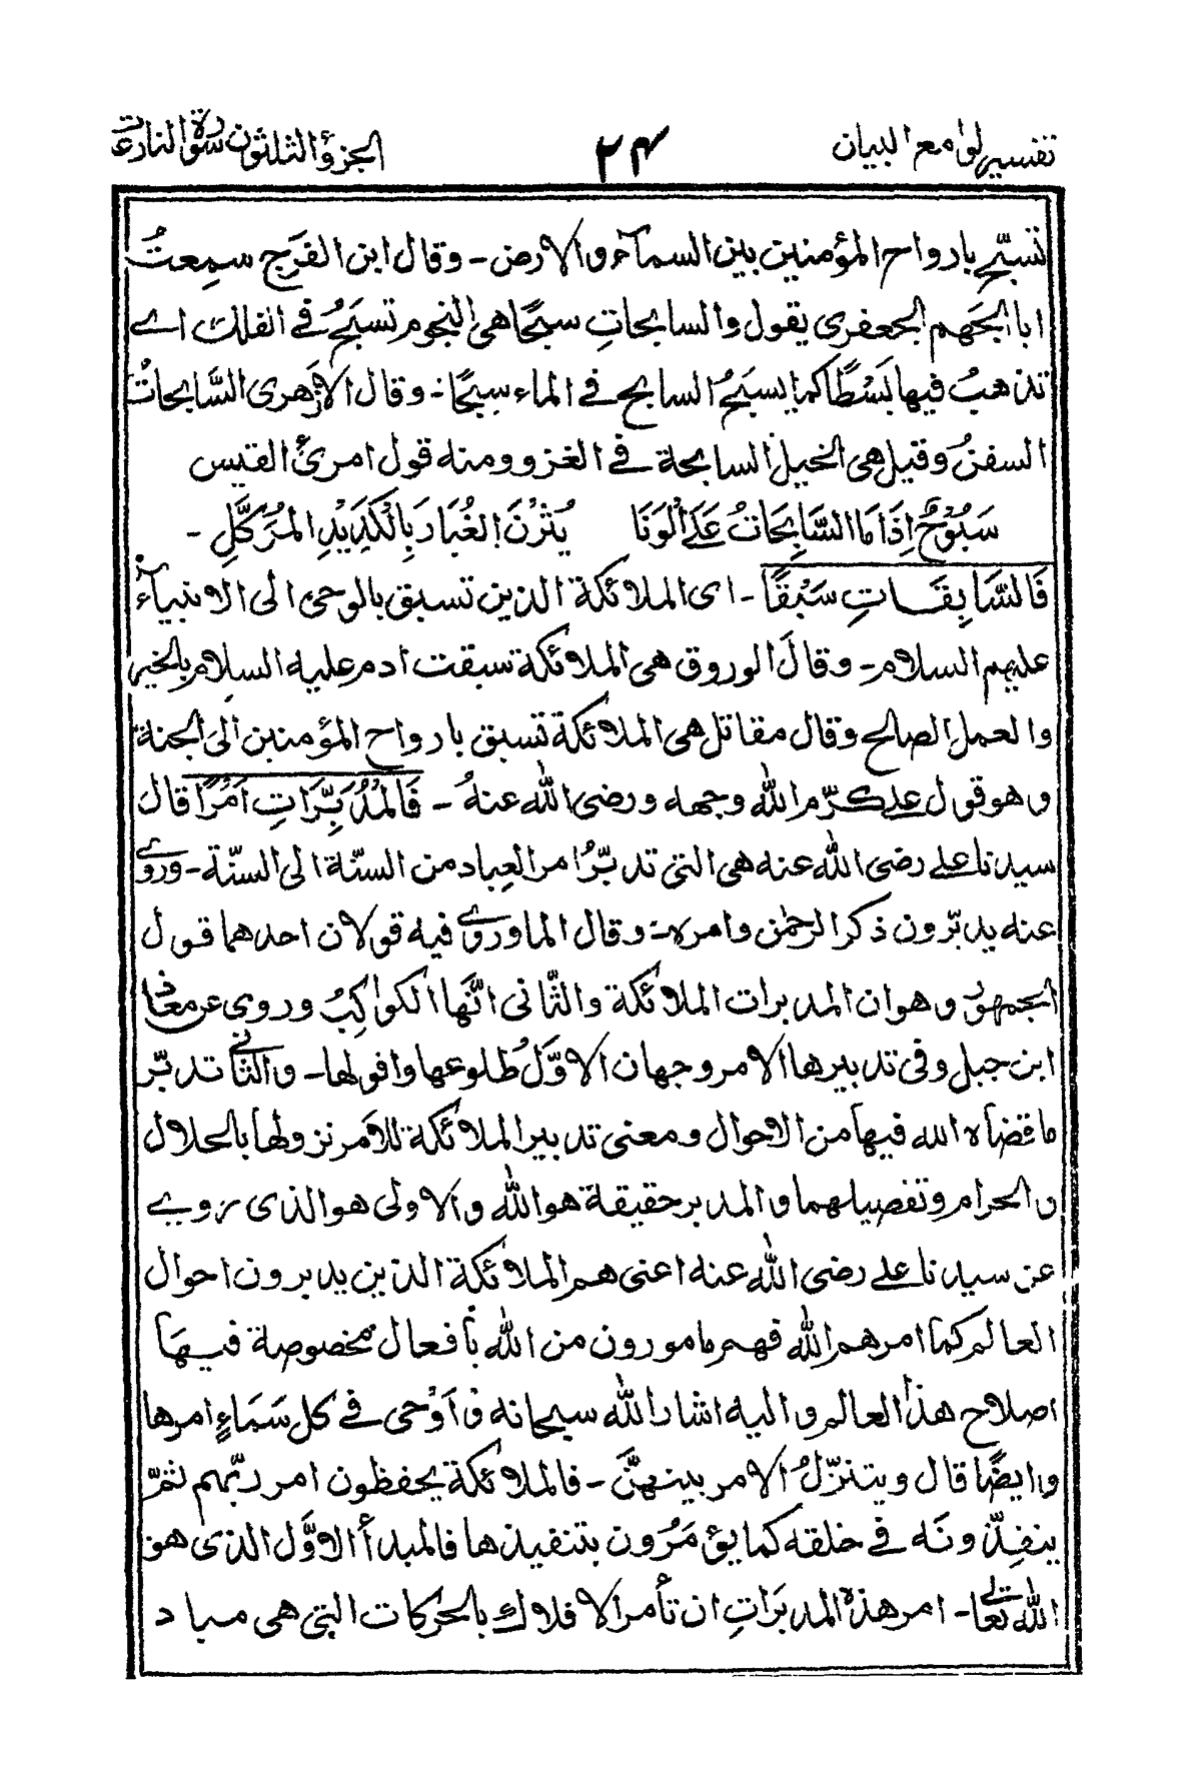 تفسير لوامع البيان ٢٤ الجزؤ الثلثون سورة النازعات
تسبّح بارواح المؤمنين بين السمآء والارض - وقال ابن الفَرَج سمِعتُ
ابا الجَهم الجعفرى يقول والسابحاتِ سبحًا هى النجوم تسبَحُ فى الفلك اے
تذهبُ فيها بَسْطًا كما يسبَحُ السابح فى الماء سبحًا - وقال الازهرى السَّابحاتُ
السفنُ وقيل هى الخيل السابحة فى الغزو ومنه قول امرئ القيس
سَبُوْحٌ اِذَا مَا السَّابِحَاتُ عَلَى الْوَنَا يُثْرْنَ الغُبَارَ بِالْكَدِيْدِ المُرَكَّلِ -
فَالسَّابِقَاتِ سَبْقًا - اى الملائكة الذين تسبق بالوحى الى الانبيآء
عليهم السلام - وقالَ الوروق هى الملائكة سبقت ادم عليه السلام بالخير
والعمل الصالح وقال مقاتل هى الملائكة تسبق بارواح المؤمنين الى الجنة
وهو قول على كرّم الله وجهه ورضى الله عنهُ - فَالْمُدَبِّرَاتِ اَمْرًا قال
سيدنا على رضى الله عنه هى التى تدبّرُ امر العِباد من السنّة الى السنّة - وروى
عنه يدبّرون ذكر الرحمٰن وامره - وقال الماوردى فيه قولان احدهما قول
الجمهور وهو ان المدبرات الملائكة والثّانى انَّها الكواكِبُ وروى عن معاذ
ابن جبل وفى تدبيرها الامر وجهان الاوَّل طُلوعها وافولها - والثّانى تدبّر
ما قضاه الله فيها من الاحوال ومعنى تدبير الملائكة للامر نزولها بالحلال
والحرام وتفصيلهما والمدبر حقيقة هو الله والاولى هو الذى روى
عن سيدنا على رضى الله عنه اعنى هم الملائكة الذين يدبرون احوال
العالم كما امرهم الله فهم مامورون من الله بأفعال مخصوصة فيها
اصلاح هذا العالم واليه اشار الله سبحانه وَاَوْحى فى كل سَمَاءٍ امرها
وايضًا قال ويتنزّلُ الامر بينهنَّ - فالملائكة يحفظون امر ربّهم ثمّ
ينفِذّونَه فى خلقه كما يؤمَرُون بتنفيذها فالمبدأ الاوَّل الذى هو
الله تعالى - امر هذه المدبرَاتِ ان تأمر الافلاك بالحركات التى هى مباد